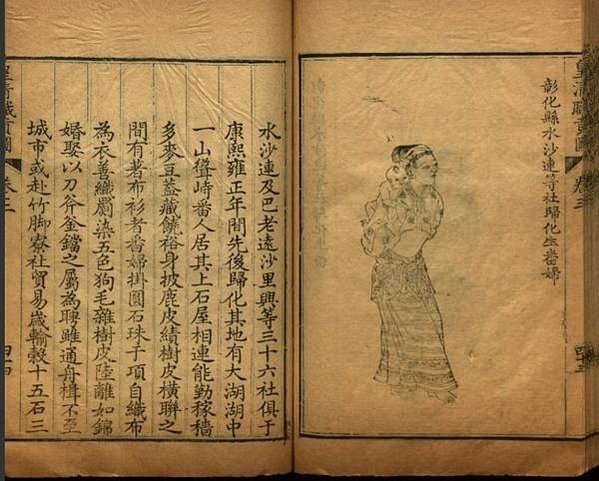 皇清職貢圖 卷三 四三
彰化縣水沙連等社歸化生番婦
水沙連及巴老遠沙里興等三十六社俱于
康熙雍正年間先後歸化其地有大湖湖中
一山聳峙番人居其上石屋相連能勤稼穡
多麥豆蓋藏饒裕身披鹿皮績樹皮橫聯之
間有著布衫者番婦掛圓石珠于項自織布
為衣善織罽染五色狗毛雜樹皮陸離如錦
婚娶以刀斧釜鐺之屬為聘雖通舟楫不至
城市或赴竹脚寮社貿易歲輸穀十五石三
皇清職貢圖 卷三 四四